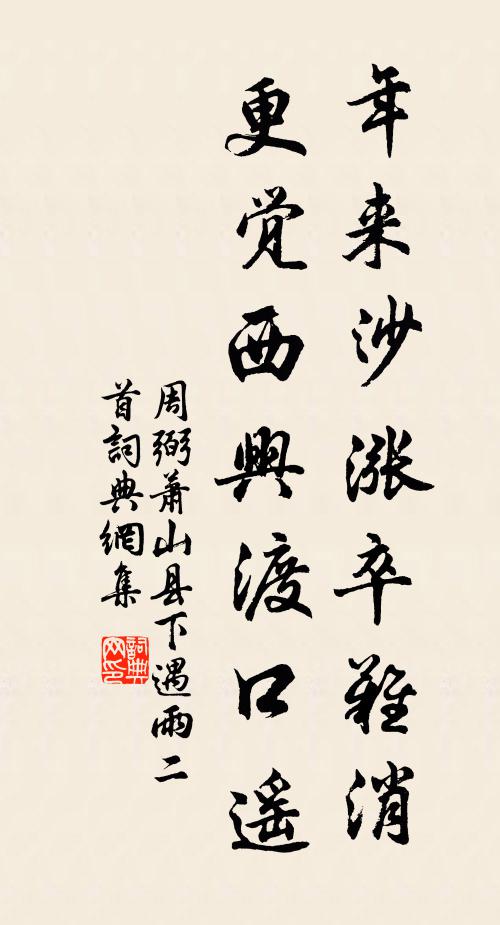 年来沙漲卒難消
更覚西興渡口遥
周弼蕭山县下遇雨二
首詞典網集
詞典网印